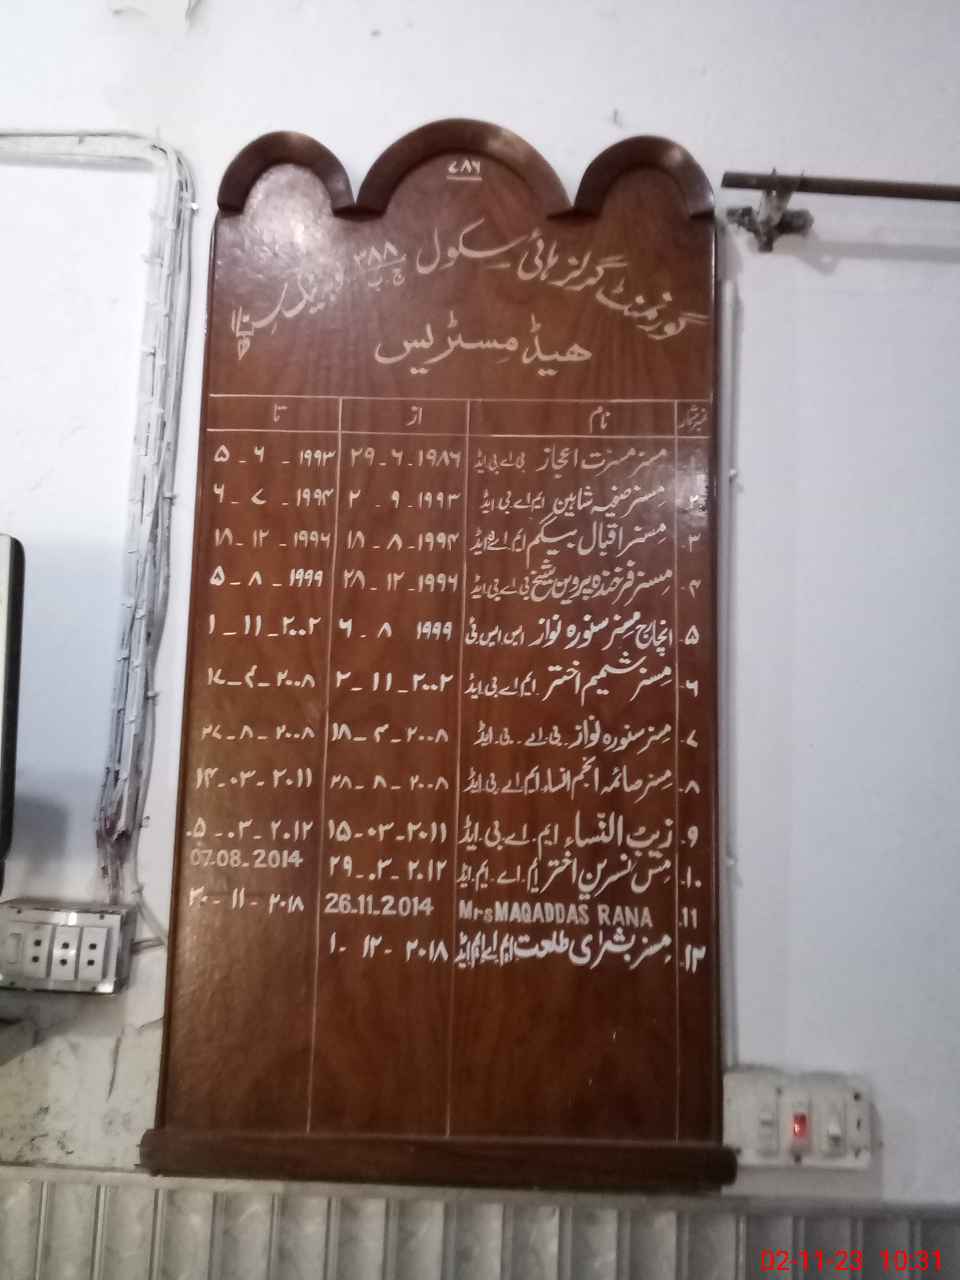 ۷۸۶
گورنمنٹ گرلز ہائی سکول ۲۸۸ ج ب
ھیڈ مسٹریس
نمبر شمار نام از تا
۱ مسز مسرت اعجاز بی اے بی ایڈ ۲۹-۶-۱۹۸۶ ۵-۶-۱۹۹۳
۲ مسز صفیہ شاہین ایم اے بی ایڈ ۲-۹-۱۹۹۳ ۶-۷-۱۹۹۴
۳ مسز اقبال بیگم ایم اے ایڈ ۱۸-۸-۱۹۹۴ ۱۸-۱۲-۱۹۹۶
۴ مسز فرخندہ پروین شیخ بی اے بی ایڈ ۲۸-۱۲-۱۹۹۶ ۵-۸-۱۹۹۹
۵ انچارج مسز سنورہ نواز ایس ایس ٹی ۶-۸-۱۹۹۹ ۱-۱۱-۲۰۰۲
۶ مسز شمیم اختر ایم اے بی ایڈ ۲-۱۱-۲۰۰۲ ۱۷-۴-۲۰۰۸
۷ مسز سنورہ نواز بی۔اے۔بی۔ایڈ ۱۸-۴-۲۰۰۸ ۲۷-۸-۲۰۰۸
۸ مسز صائمہ انجم انساء ایم اے بی ایڈ ۲۸-۸-۲۰۰۸ ۱۴-۰۳-۲۰۱۱
۹ زیب النساء ایم اے بی ایڈ ۱۵-۰۳-۲۰۱۱ ۰۵-۰۳-۲۰۱۲
۱۰ مس نسرین اختر ایم۔اے۔ایم۔ایڈ ۲۹-۰۳-۲۰۱۲ 07-08-2014
11 Mrs MAQADDAS RANA 26-11-2014 ۳۰-۱۱-۲۰۱۸
۱۲ مسز بشرٰی طلعت ایم اے ایم ایڈ ۱-۱۲-۲۰۱۸
02-11-23 10:31